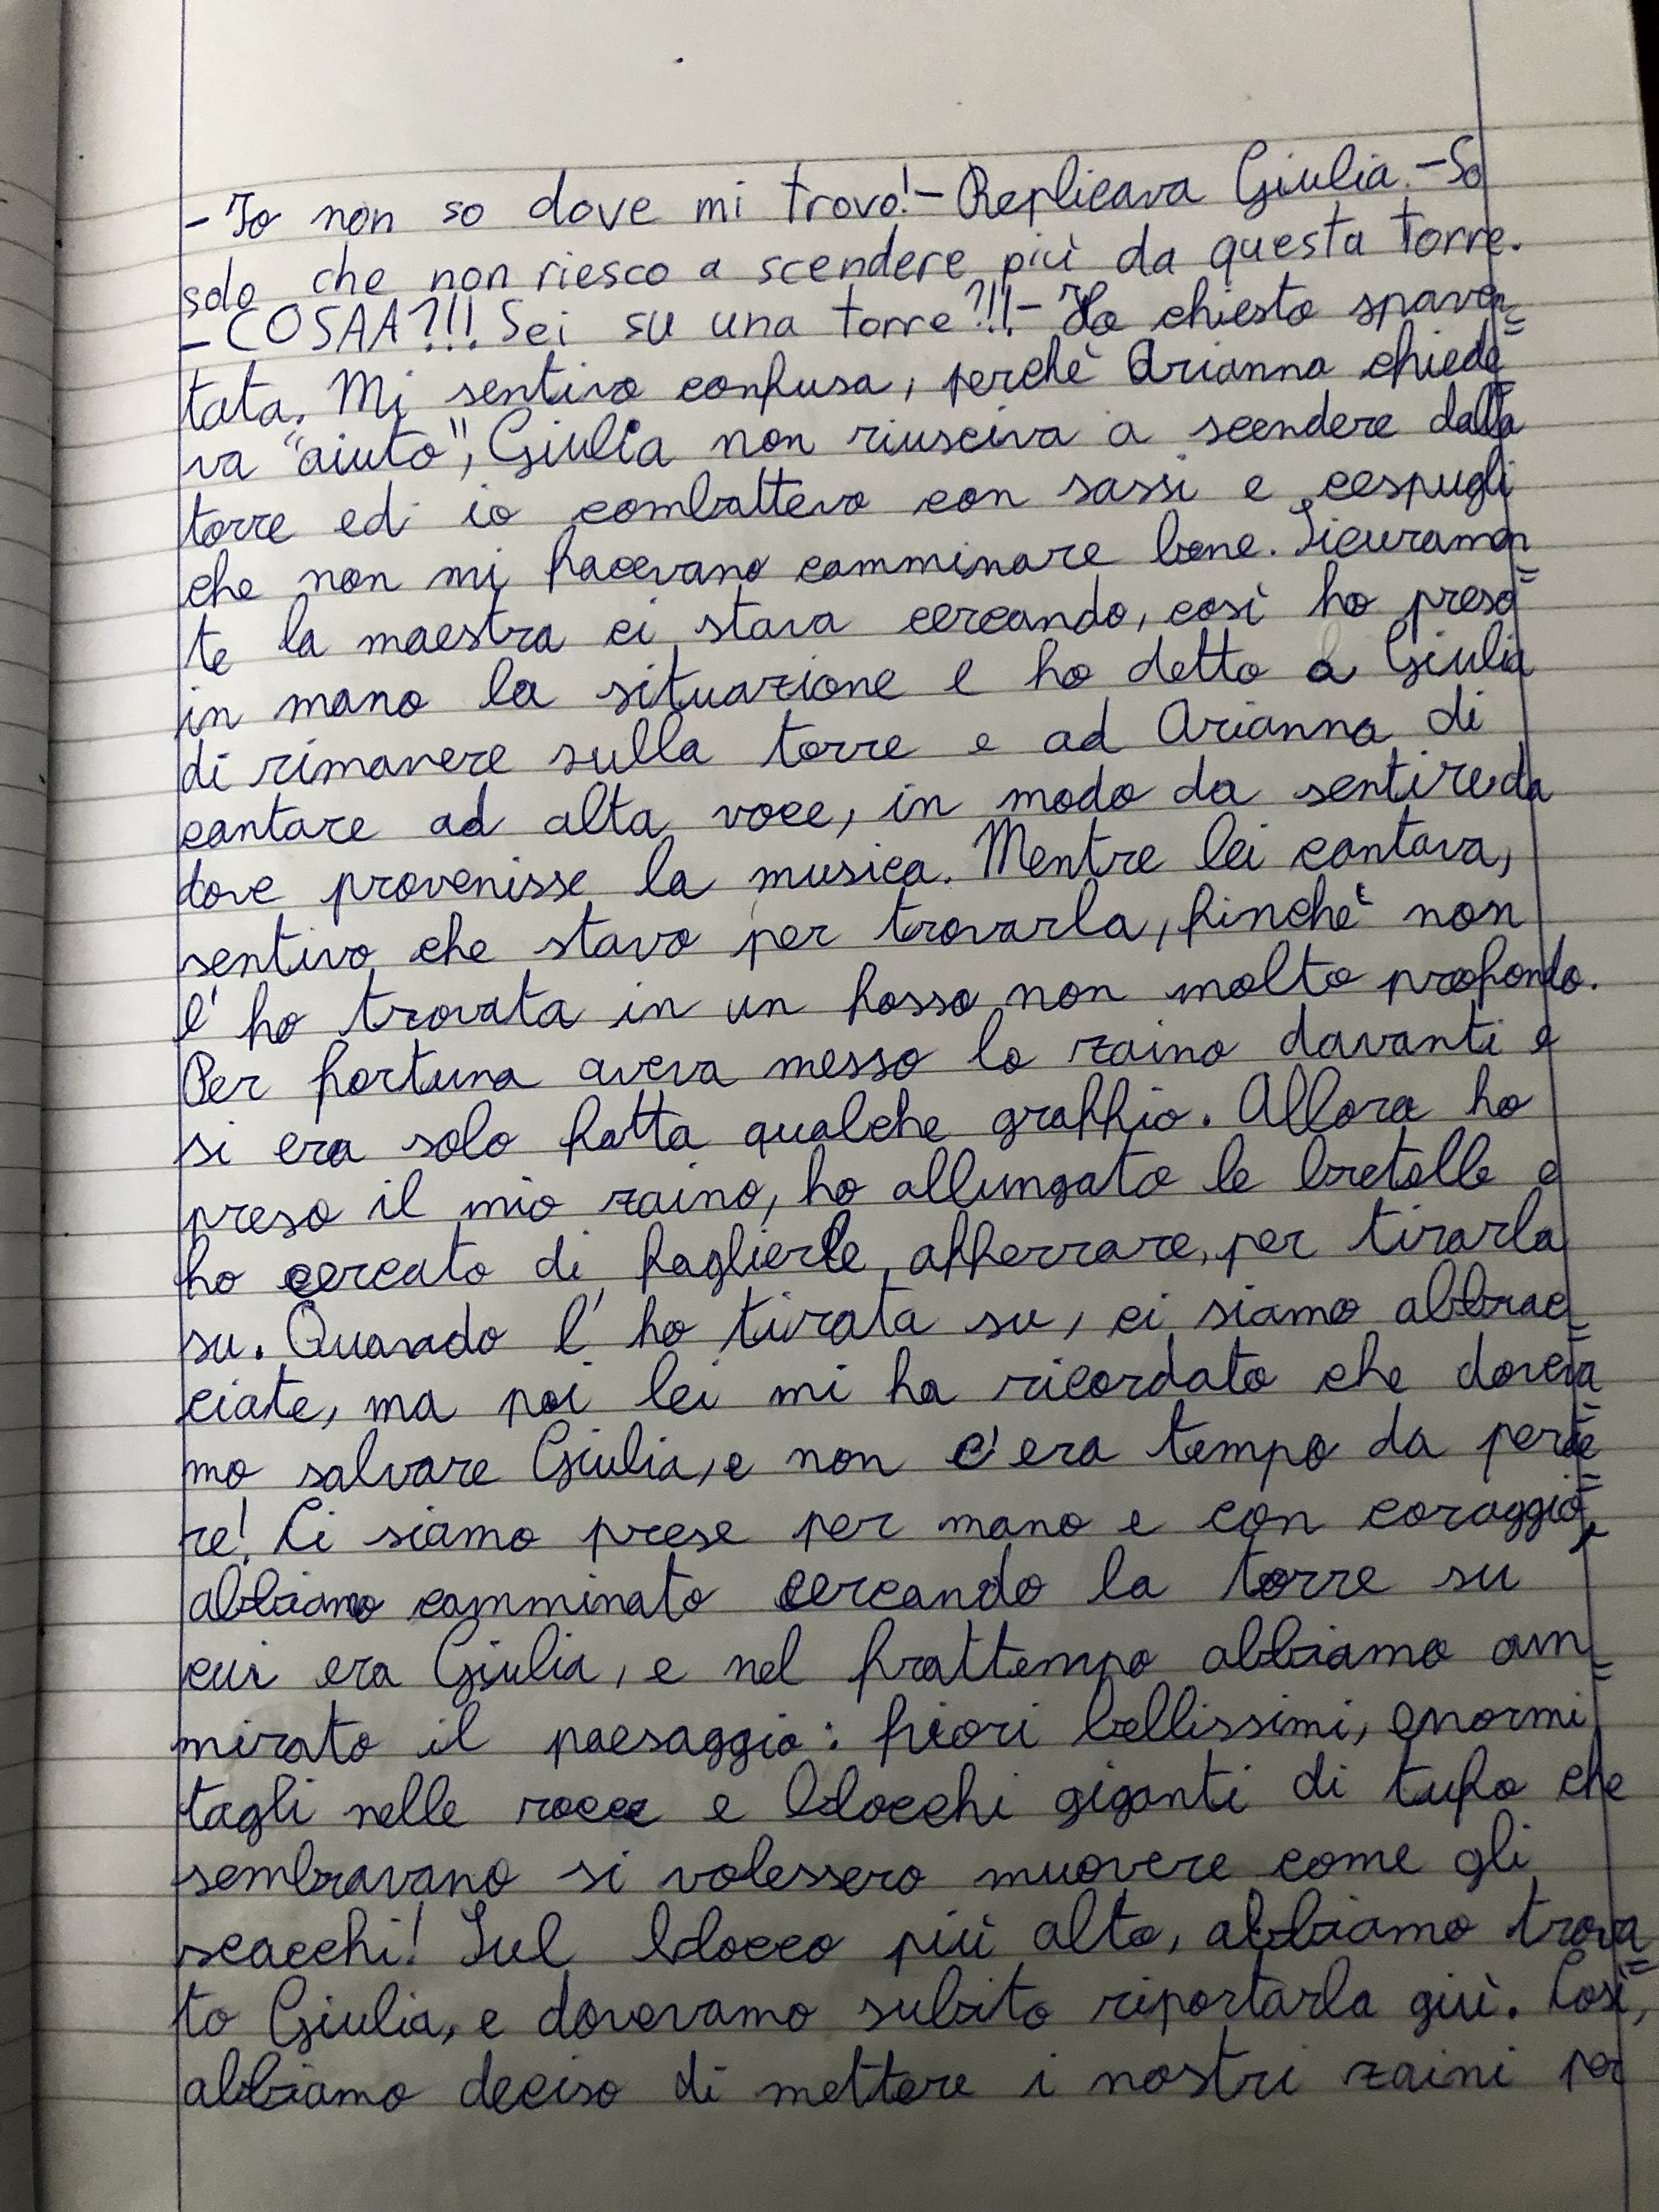 -Io non so dove mi trovo!- Replicava Giulia.-So
solo che non riesco a scendere più da questa torre.
-COSAA?!!! Sei su una torre?!!!- Ho chiesto spaven=
tata. Mi sentivo confusa, perchè Arianna chiede=
va "aiuto", Giulia non riusciva a scendere dalla
torre ed io combattevo con sassi e cespugli
che non mi facevano camminare bene. Sicuramen=
te la maestra ci stava cercando, così ho preso
in mano la situazione e ho detto a Giulia
di rimanere sulla torre e ad Arianna di
cantare ad alta voce, in modo da sentire da
dove provenisse la musica. Mentre lei cantava,
sentivo che stavo per trovarla, finchè non
l'ho trovata in un fosso non molto profondo.
Per fortuna aveva messo lo zaino davanti e
si era solo fatta qualche graffio. Allora ho
preso il mio zaino, ho allungato le bretelle e
ho cercato di fagliele afferrare, per tirarla
su. Quando l'ho tirata su, ci siamo abbrac=
ciate, ma poi lei mi ha ricordato che doveva=
mo salvare Giulia, e non c'era tempo da perde=
re! Ci siamo prese per mano e con coraggio,
abbiamo camminato cercando la torre su
cui era Giulia, e nel frattempo abbiamo am=
mirato il paesaggio: fiori bellissimi, enormi
tagli nelle rocce e blocchi giganti di tufo che
sembravano si volessero muovere come gli
scacchi! Sul blocco più alto, abbiamo trova=
to Giulia, e dovevamo subito riportarla giù. Così,
abbiamo deciso di mettere i nostri zaini per